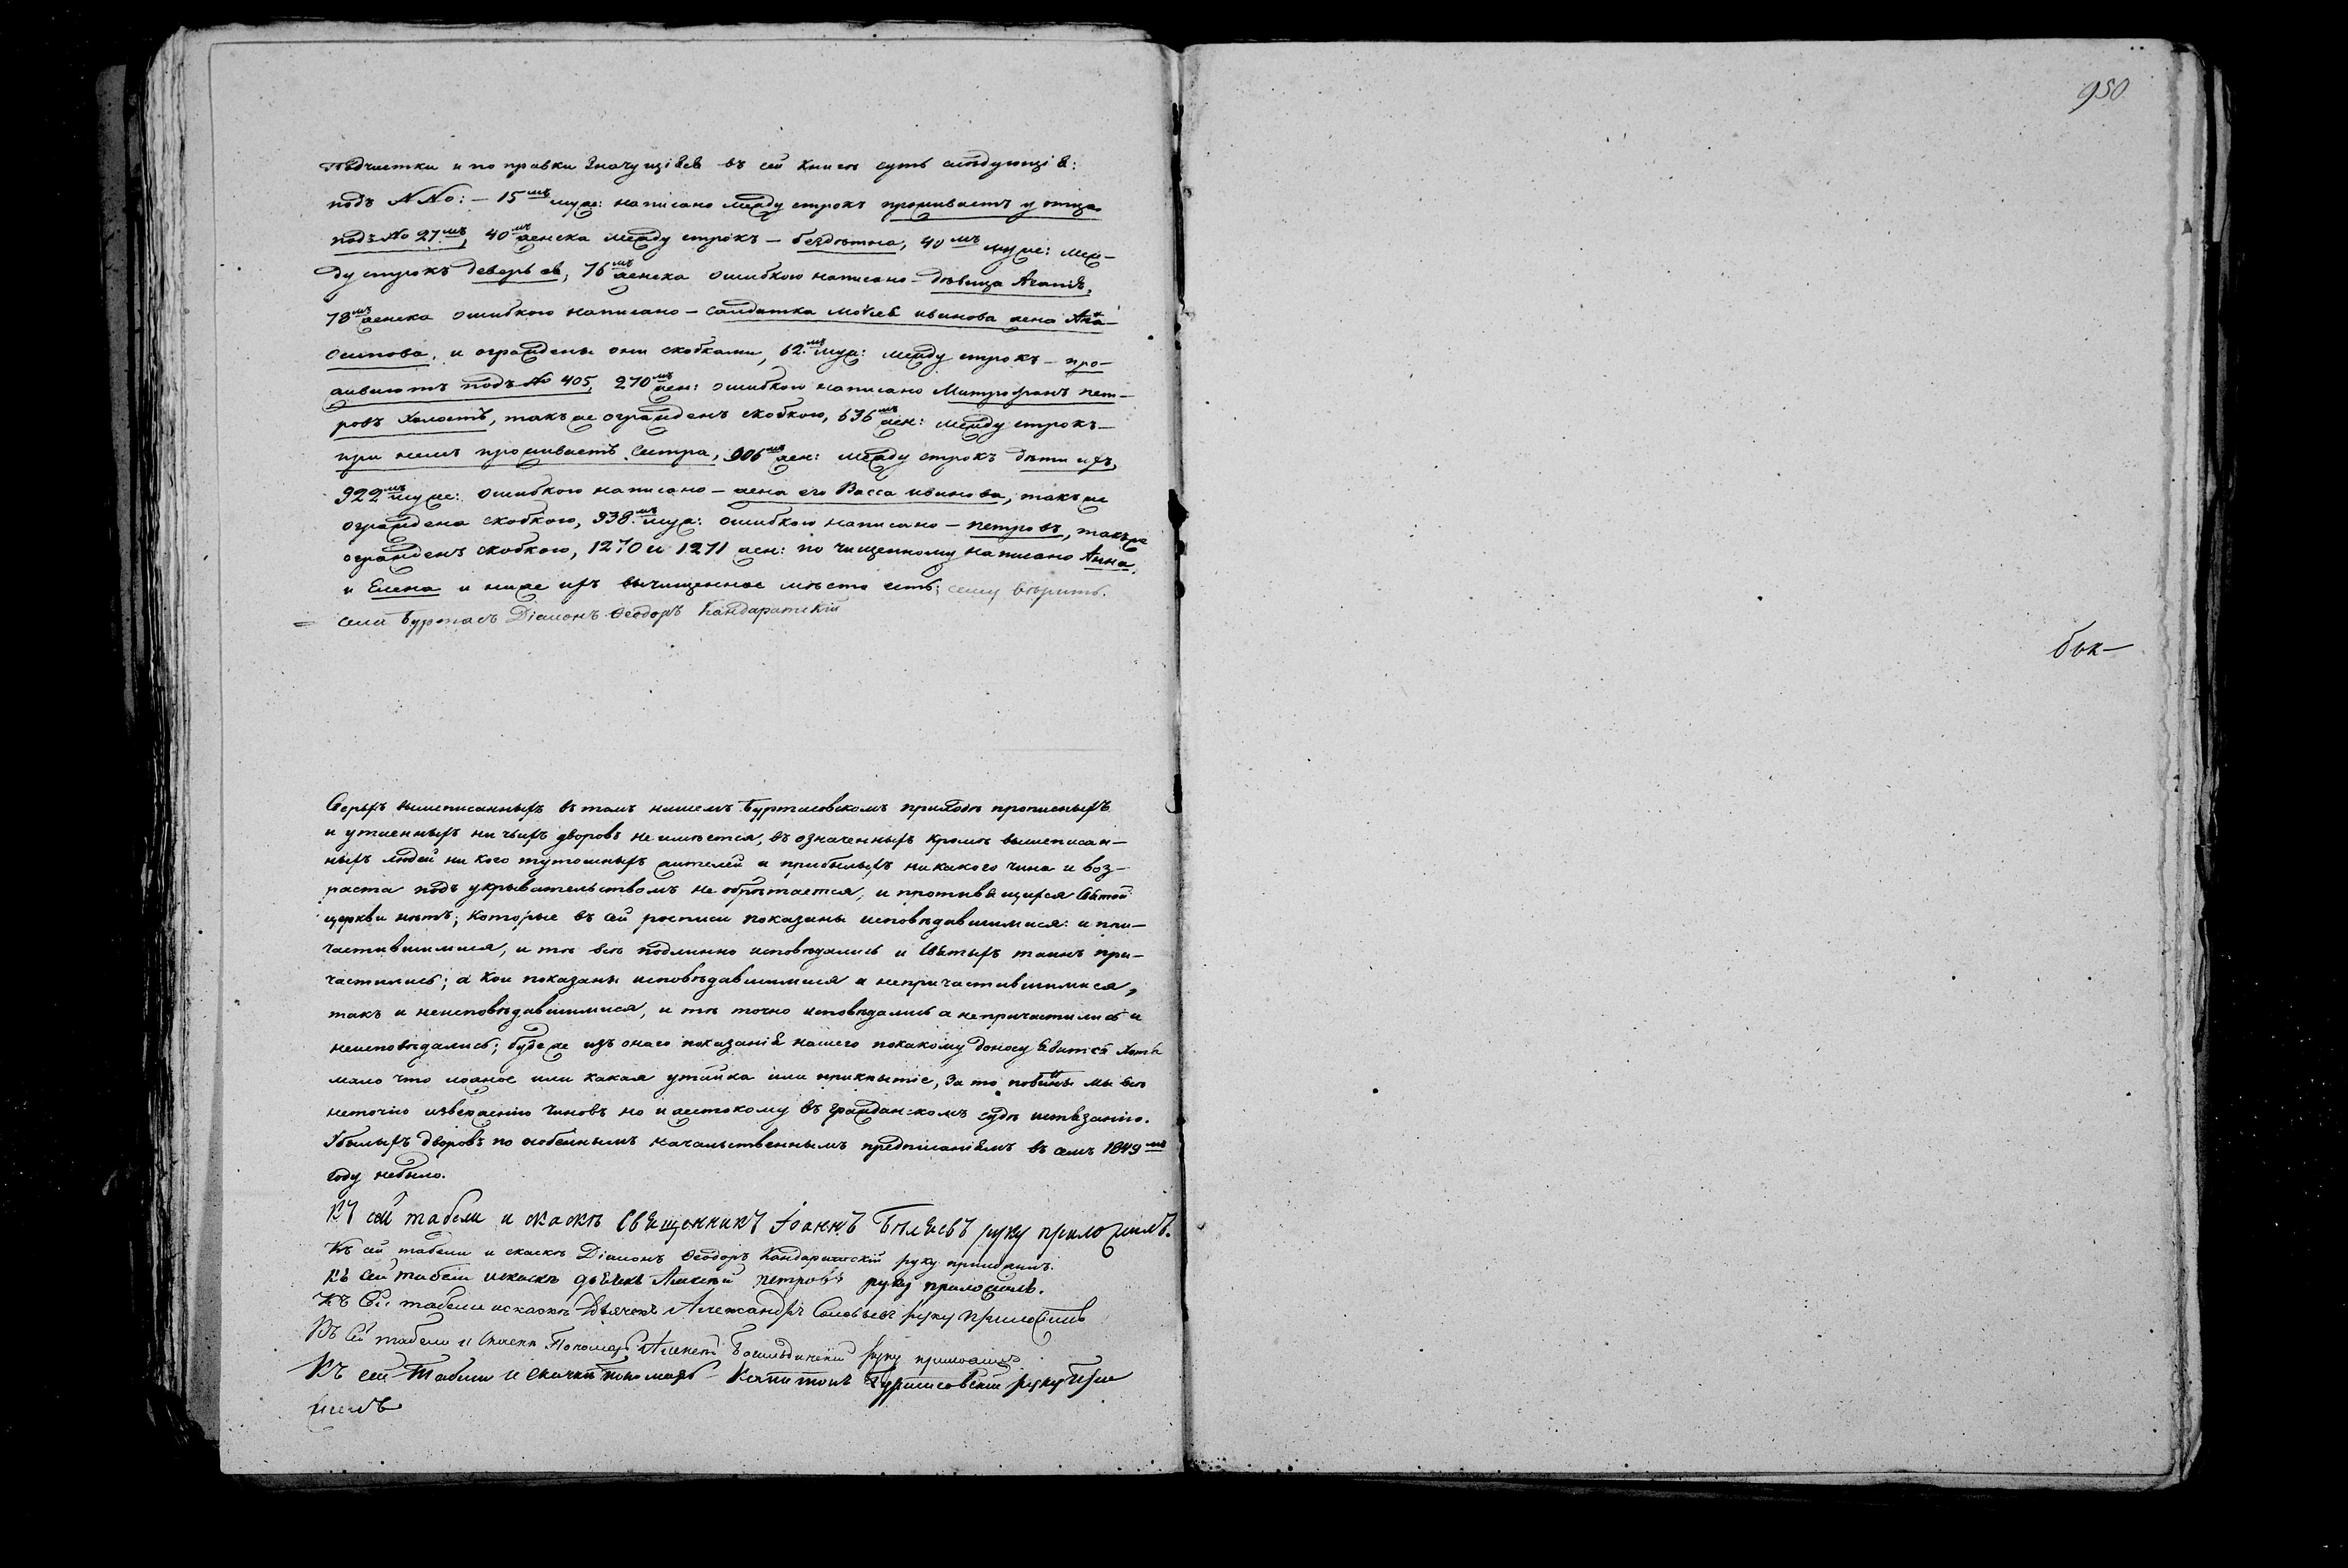 Подчистки и по правки значущіяся въ сей книгѣ суть слѣдующія:
подъ NNо: – 15мъ муж: написано между строкъ проживаетъ у отца
подъ No 27.мъ, 40мъ женска между строкъ – бездѣтна, 40мъ муже: меж–
ду строкъ деверь ея, 76мъ женска ошибкою написано – дѣвица Агапія,
78мъ женска ошибкою написано – салдатка Моѵсея иванова жена
осипова, и ограждены они скобками, 62.мъ муж: между строкъ – про–
живаютъ подъ No 405, 270мъ жен: ошибкою написано Митрофанъ пет–
ровъ холостъ, такъ же огражденъ скобкою, 636мъ жен: между строкъ –
при немъ проживаетъ сестра, 906мъ жен: между строкъ дѣти ихъ,
922мъ муже: ошибкою написано – жена его Васса иванова, такъ же
ограждена скобкою, 938.мъ муж: ошибкою написано – петровъ, такъ же
огражденъ скобкою, 1270 и 1271 жен: по чищенному написано Анна,
и Елена и ниже ихъ вычищенное мѣсто есть; сему вѣрить.
= села Буртасъ Діаконъ Ѳеодоръ Кандаратскій
Сверхъ вышеписанныхъ въ томъ нашемъ Буртасовскомъ приходѣ прописныхъ
и утаенныхъ ни чьихъ дворовъ не имѣется, въ означенныхъ кромѣ вышеписан–
ныхъ людей ни кого тутошныхъ жителей и прибылыхъ никакого чина и воз–
раста подъ укрывательствомъ не обрѣтается, и противящихся Святой
церкви нѣтъ; которые въ сей росписи показаны исповѣдавшимися: и при–
частившимися, и тѣ всѣ подлинно исповѣдались и Святыхъ таинъ при–
частились; а кои показаны исповѣдавшимися и непричастившимися,
такъ и неисповѣдавшимися, и тѣ точно исповѣдались а непричастились и
неисповѣдались; буде же изъ онаго показанія нашего покакому доносу явится хотя
мало что ложное или какая утайка или прикрытіе, за то повинны мы всѣ
неточію изверженію чиновъ но и жестокому въ гражданскомъ судѣ истязанію.
Убылыхъ дворовъ по особеннымъ начальственнымъ предписаніямъ въ семъ 1849мъ
году небыло.
Къ сей табели и сказкѣ Священникъ Іоаннъ Бѣляевъ руку приложилъ.
Къ сей табели и сказкѣ Діаконъ Ѳеодоръ Кандаратскій руку приложилъ.
Къ сей табели искаскѣ дьячекъ Алексѣй петровъ руку приложилъ.
Къ Сей табели искаскѣ Дьячекъ Александръ Соловьевъ руку приложилъ
Къ Сей табели и Скаски Пономарь Алексѣй руку приложилъ
Къ сей Табели и Скачки пономарь Капитонъ Буртасовскій руку При
жилъ
950
бѣл–